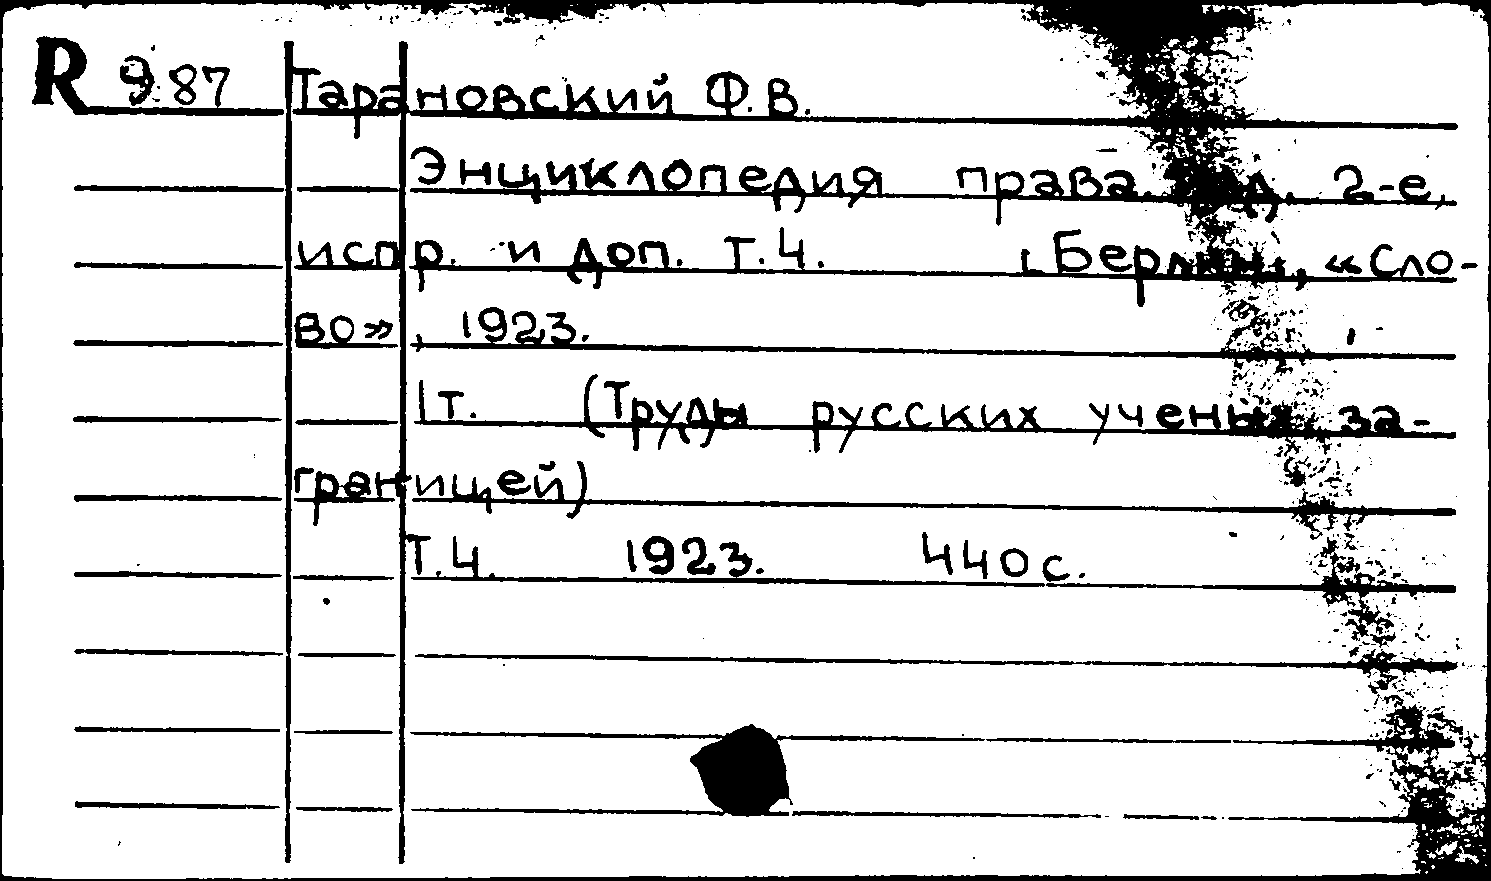 R 987 Тарановский Ф.В.
Энциклопедия права. Изд. 2-е,
испр. и доп. Т.Ч. [Берлин], «Сло-
во», 1923.
1т. (Труды русских ученых за-
границей)
Т.Ч. 1923. 440с.